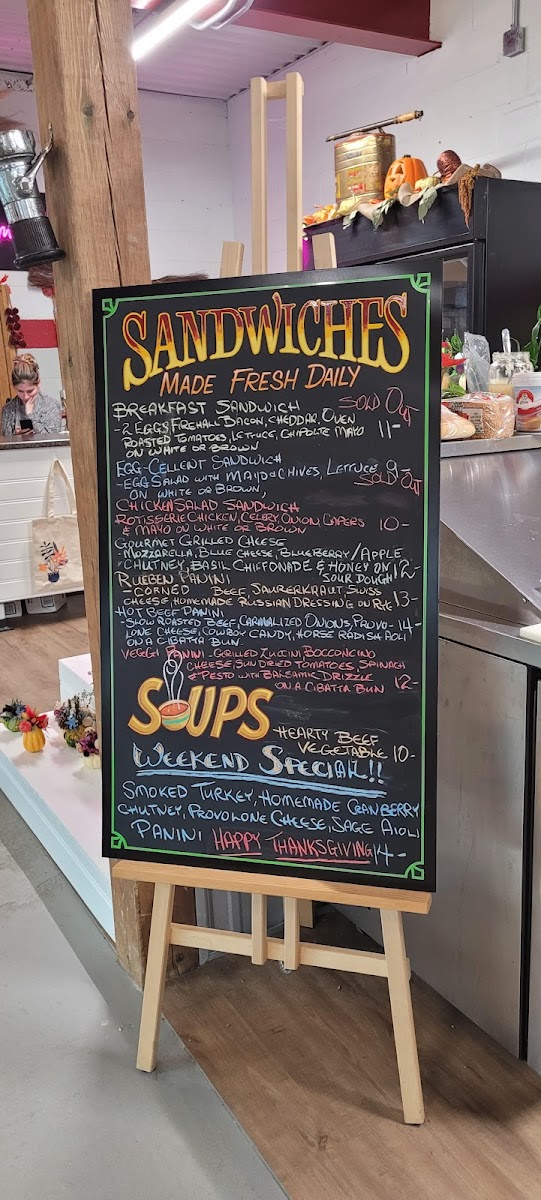 SANDWICHES
MADE FRESH DAILY
BREAKFAST SANDWICH SOLD OUT
-2 EGGS, FIREHALL BACON, CHEDDAR, OVEN
ROASTED TOMATOES, LETTUCE, CHIPOLTE MAYO 11-
ON WHITE OR BROWN
EGG-CELLENT SANDWICH
-EGG SALAD WITH MAYO & CHIVES, LETTUCE 9-
ON WHITE OR BROWN, SOLD OUT
CHICKEN SALAD SANDWICH
ROTISSERIE CHICKEN, CELERY, ONION, CAPERS
& MAYO ON WHITE OR BROWN 10-
GOURMET GRILLED CHEESE
-MOZZARELLA, BLUE CHEESE, BLUEBERRY/APPLE
CHUTNEY, BASIL CHIFFONADE & HONEY ON 12-
SOUR DOUGH
RUEBEN PANINI
-CORNED BEEF, SAURERKRAUT, SWISS
CHEESE, HOMEMADE RUSSIAN DRESSING ON RYE 13-
HOT BEEF PANINI
-SLOW ROASTED BEEF, CARMALIZED ONIONS, PROVO- 14-
LONE CHEESE, COWBOY CANDY, HORSE RADISH AOLI
ON A CIBATTA BUN
VEGGI PANINI -GRILLED ZUCCINI, BOCCONCINO
CHEESE, SUN DRIED TOMATOES, SPINACH
& PESTO WITH BALSAMIC DRIZZLE
ON A CIBATTA BUN 12-
SOUPS
-HEARTY BEEF
VEGETABLE 10-
WEEKEND SPECIAL!!
SMOKED TURKEY, HOMEMADE CRANBERRY
CHUTNEY, PROVOLONE CHEESE, SAGE AIOLI
PANINI HAPPY THANKSGIVING 14-